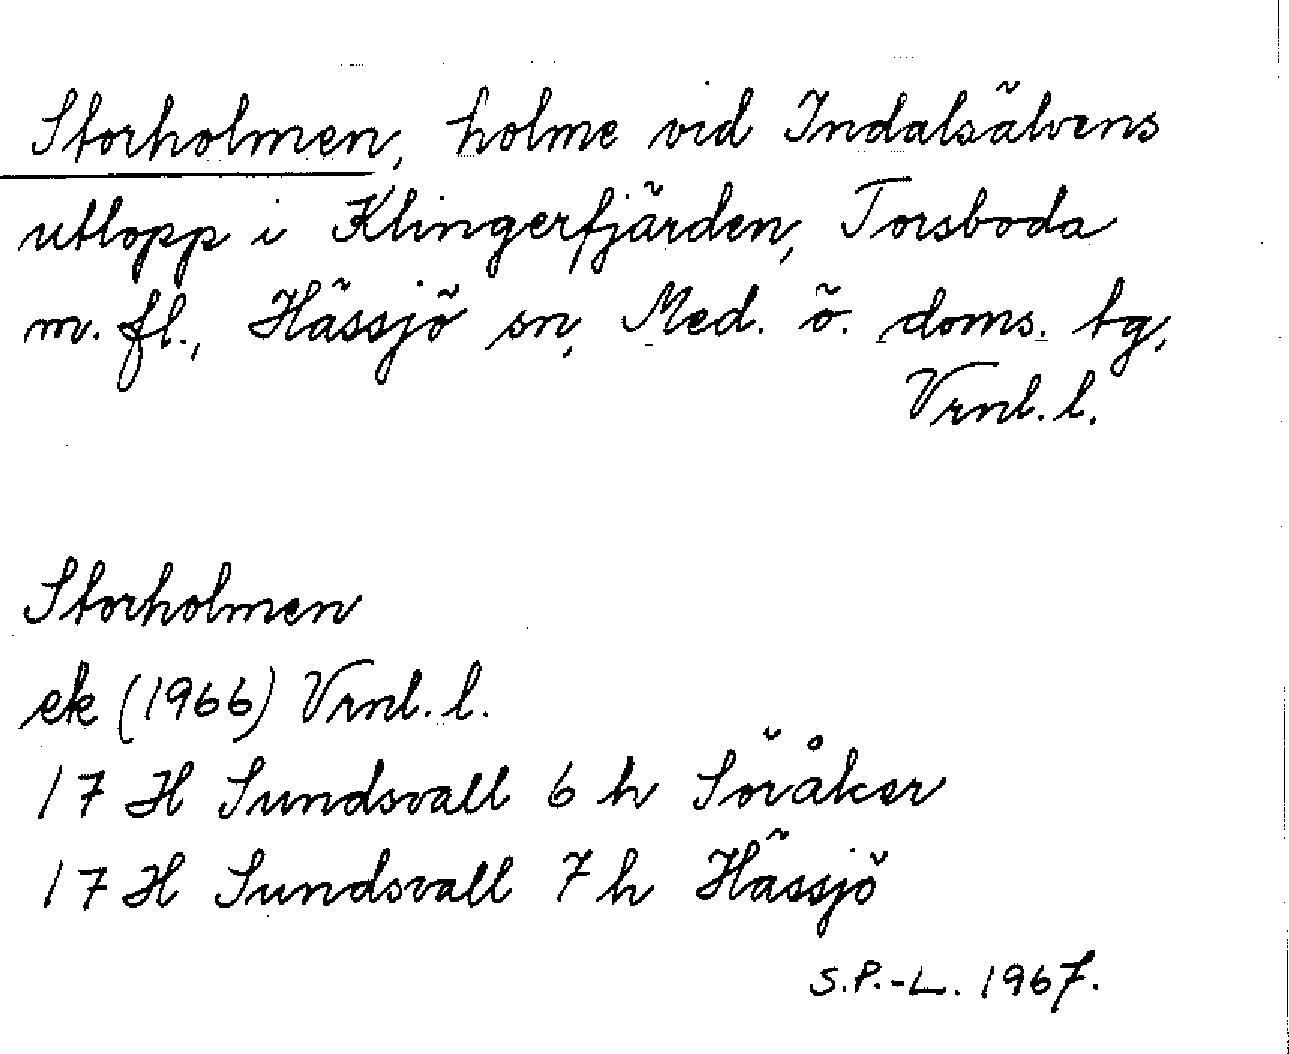 Storholmen, holme vid Indalsälvens
utlopp i Klingerfjärden, Torsboda
m. fl., Hässjö sn, Med. ö. doms. tg,
Vrnl. l.
Storholmen
ek (1966) Vrnl. l.
17 H Sundsvall 6 h Söråker
17 H Sundsvall 7 h Hässjö
S.P.-L. 1967.